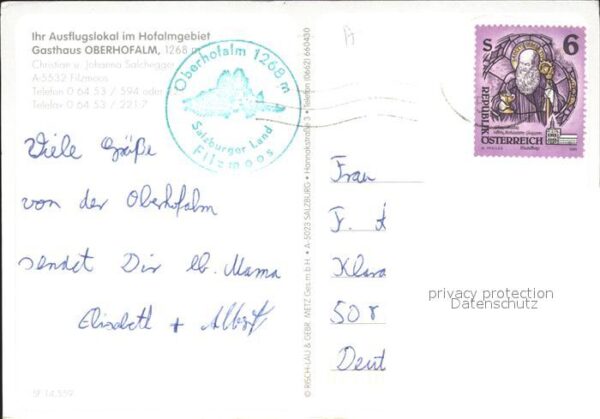 Ihr Ausflugslokal im Hofalmgebiet
Gasthaus OBERHOFALM, 1268 m
Christian u. Johanna Salchegger
A-5532 Filzmoos
Telefon 0 64 53 / 594 oder
Telefax 0 64 53 / 221-7
Oberhofalm 1268 m
Salzburger Land
Filzmoos
Viele Grüße
von der Oberhofalm
sendet Dir lb. Mama
Elisabeth + Albert
SF 14.559
© RISCH-LAU & GEBR. METZ Ges.m.b.H. • A-5023 SALZBURG • Telefon (0662) 660430
S 6
REPUBLIK
ÖSTERREICH
Frau
F.
Klara
50
Deut
privacy protection
Datenschutz